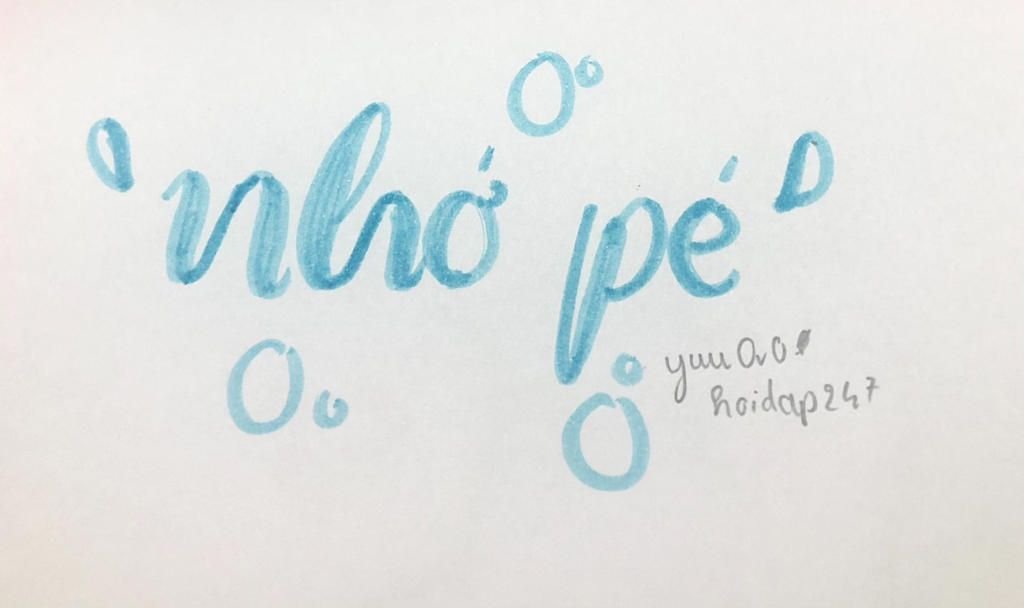 'nhớ pé'
yuu0v0!
hoidap247